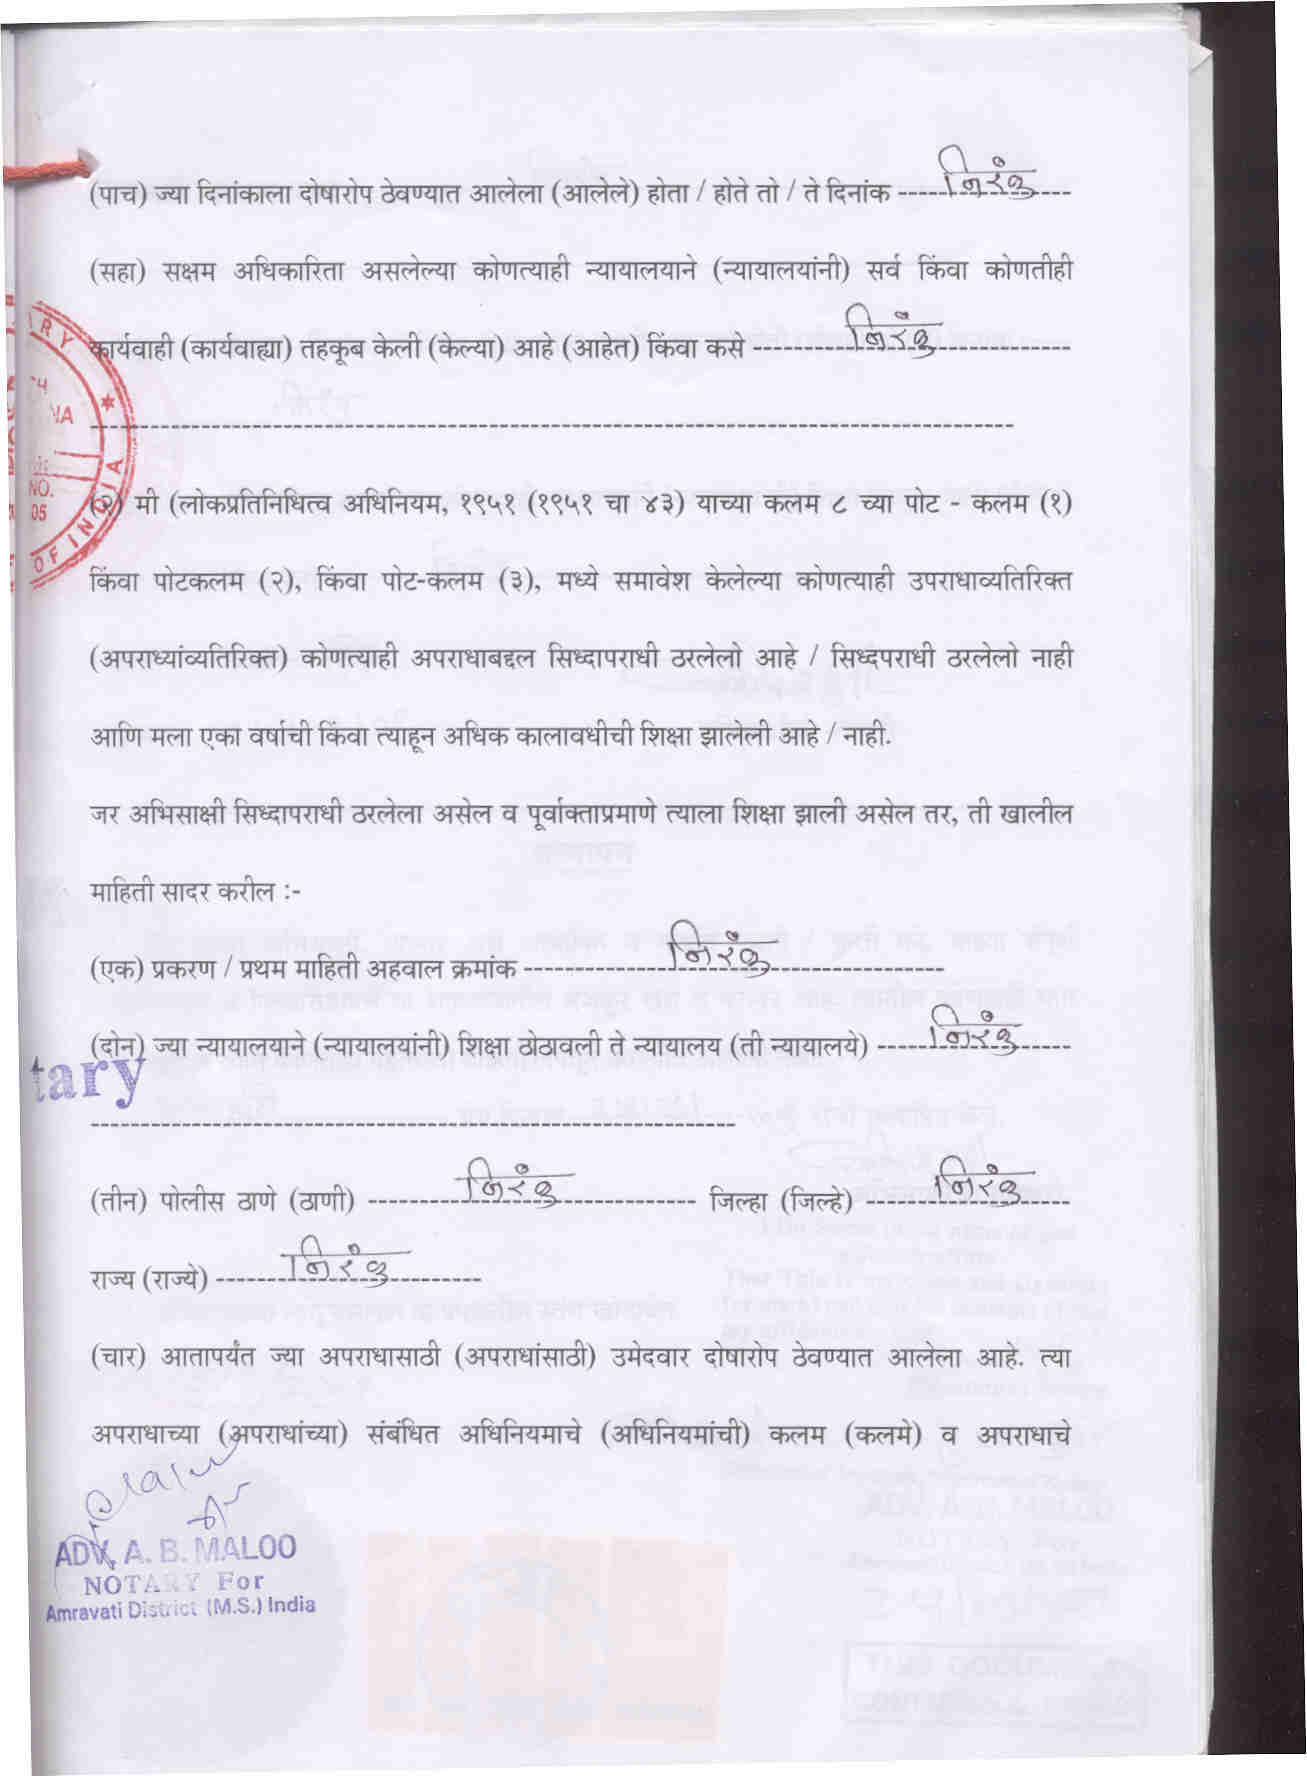 (पाच) ज्या दिनांकाला दोषारोप ठेवण्यात आलेला (आलेले) होता / होते तो / ते दिनांक ----- निरंक -----
(सहा) सक्षम अधिकारिता असलेल्या कोणत्याही न्यायालयाने (न्यायालयांनी) सर्व किंवा कोणतीही
कार्यवाही (कार्यवाह्या) तहकूब केली (केल्या) आहे (आहेत) किंवा कसे ----- निरंक -----
(२) मी (लोकप्रतिनिधित्व अधिनियम, १९५१ (१९५१ चा ४३) याच्या कलम ८ च्या पोट - कलम (१)
किंवा पोटकलम (२), किंवा पोट-कलम (३), मध्ये समावेश केलेल्या कोणत्याही उपराधाव्यतिरिक्त
(अपराध्यांव्यतिरिक्त) कोणत्याही अपराधाबद्दल सिध्दापराधी ठरलेलो आहे / सिध्दपराधी ठरलेलो नाही
आणि मला एका वर्षाची किंवा त्याहून अधिक कालावधीची शिक्षा झालेली आहे / नाही.
जर अभिसाक्षी सिध्दापराधी ठरलेला असेल व पूर्वाक्ताप्रमाणे त्याला शिक्षा झाली असेल तर, ती खालील
माहिती सादर करील :-
(एक) प्रकरण / प्रथम माहिती अहवाल क्रमांक ----- निरंक -----
(दोन) ज्या न्यायालयाने (न्यायालयांनी) शिक्षा ठोठावली ते न्यायालय (ती न्यायालये) ----- निरंक -----
tary
(तीन) पोलीस ठाणे (ठाणी) ----- निरंक ----- जिल्हा (जिल्हे) ----- निरंक -----
राज्य (राज्ये) ----- निरंक -----
(चार) आतापर्यंत ज्या अपराधासाठी (अपराधांसाठी) उमेदवार दोषारोप ठेवण्यात आलेला आहे. त्या
अपराधाच्या (अपराधांच्या) संबंधित अधिनियमाचे (अधिनियमांची) कलम (कलमे) व अपराधाचे
ADV. A. B. MALOO
NOTARY For
Amravati District (M.S.) India
NO.
05
OF INDIA